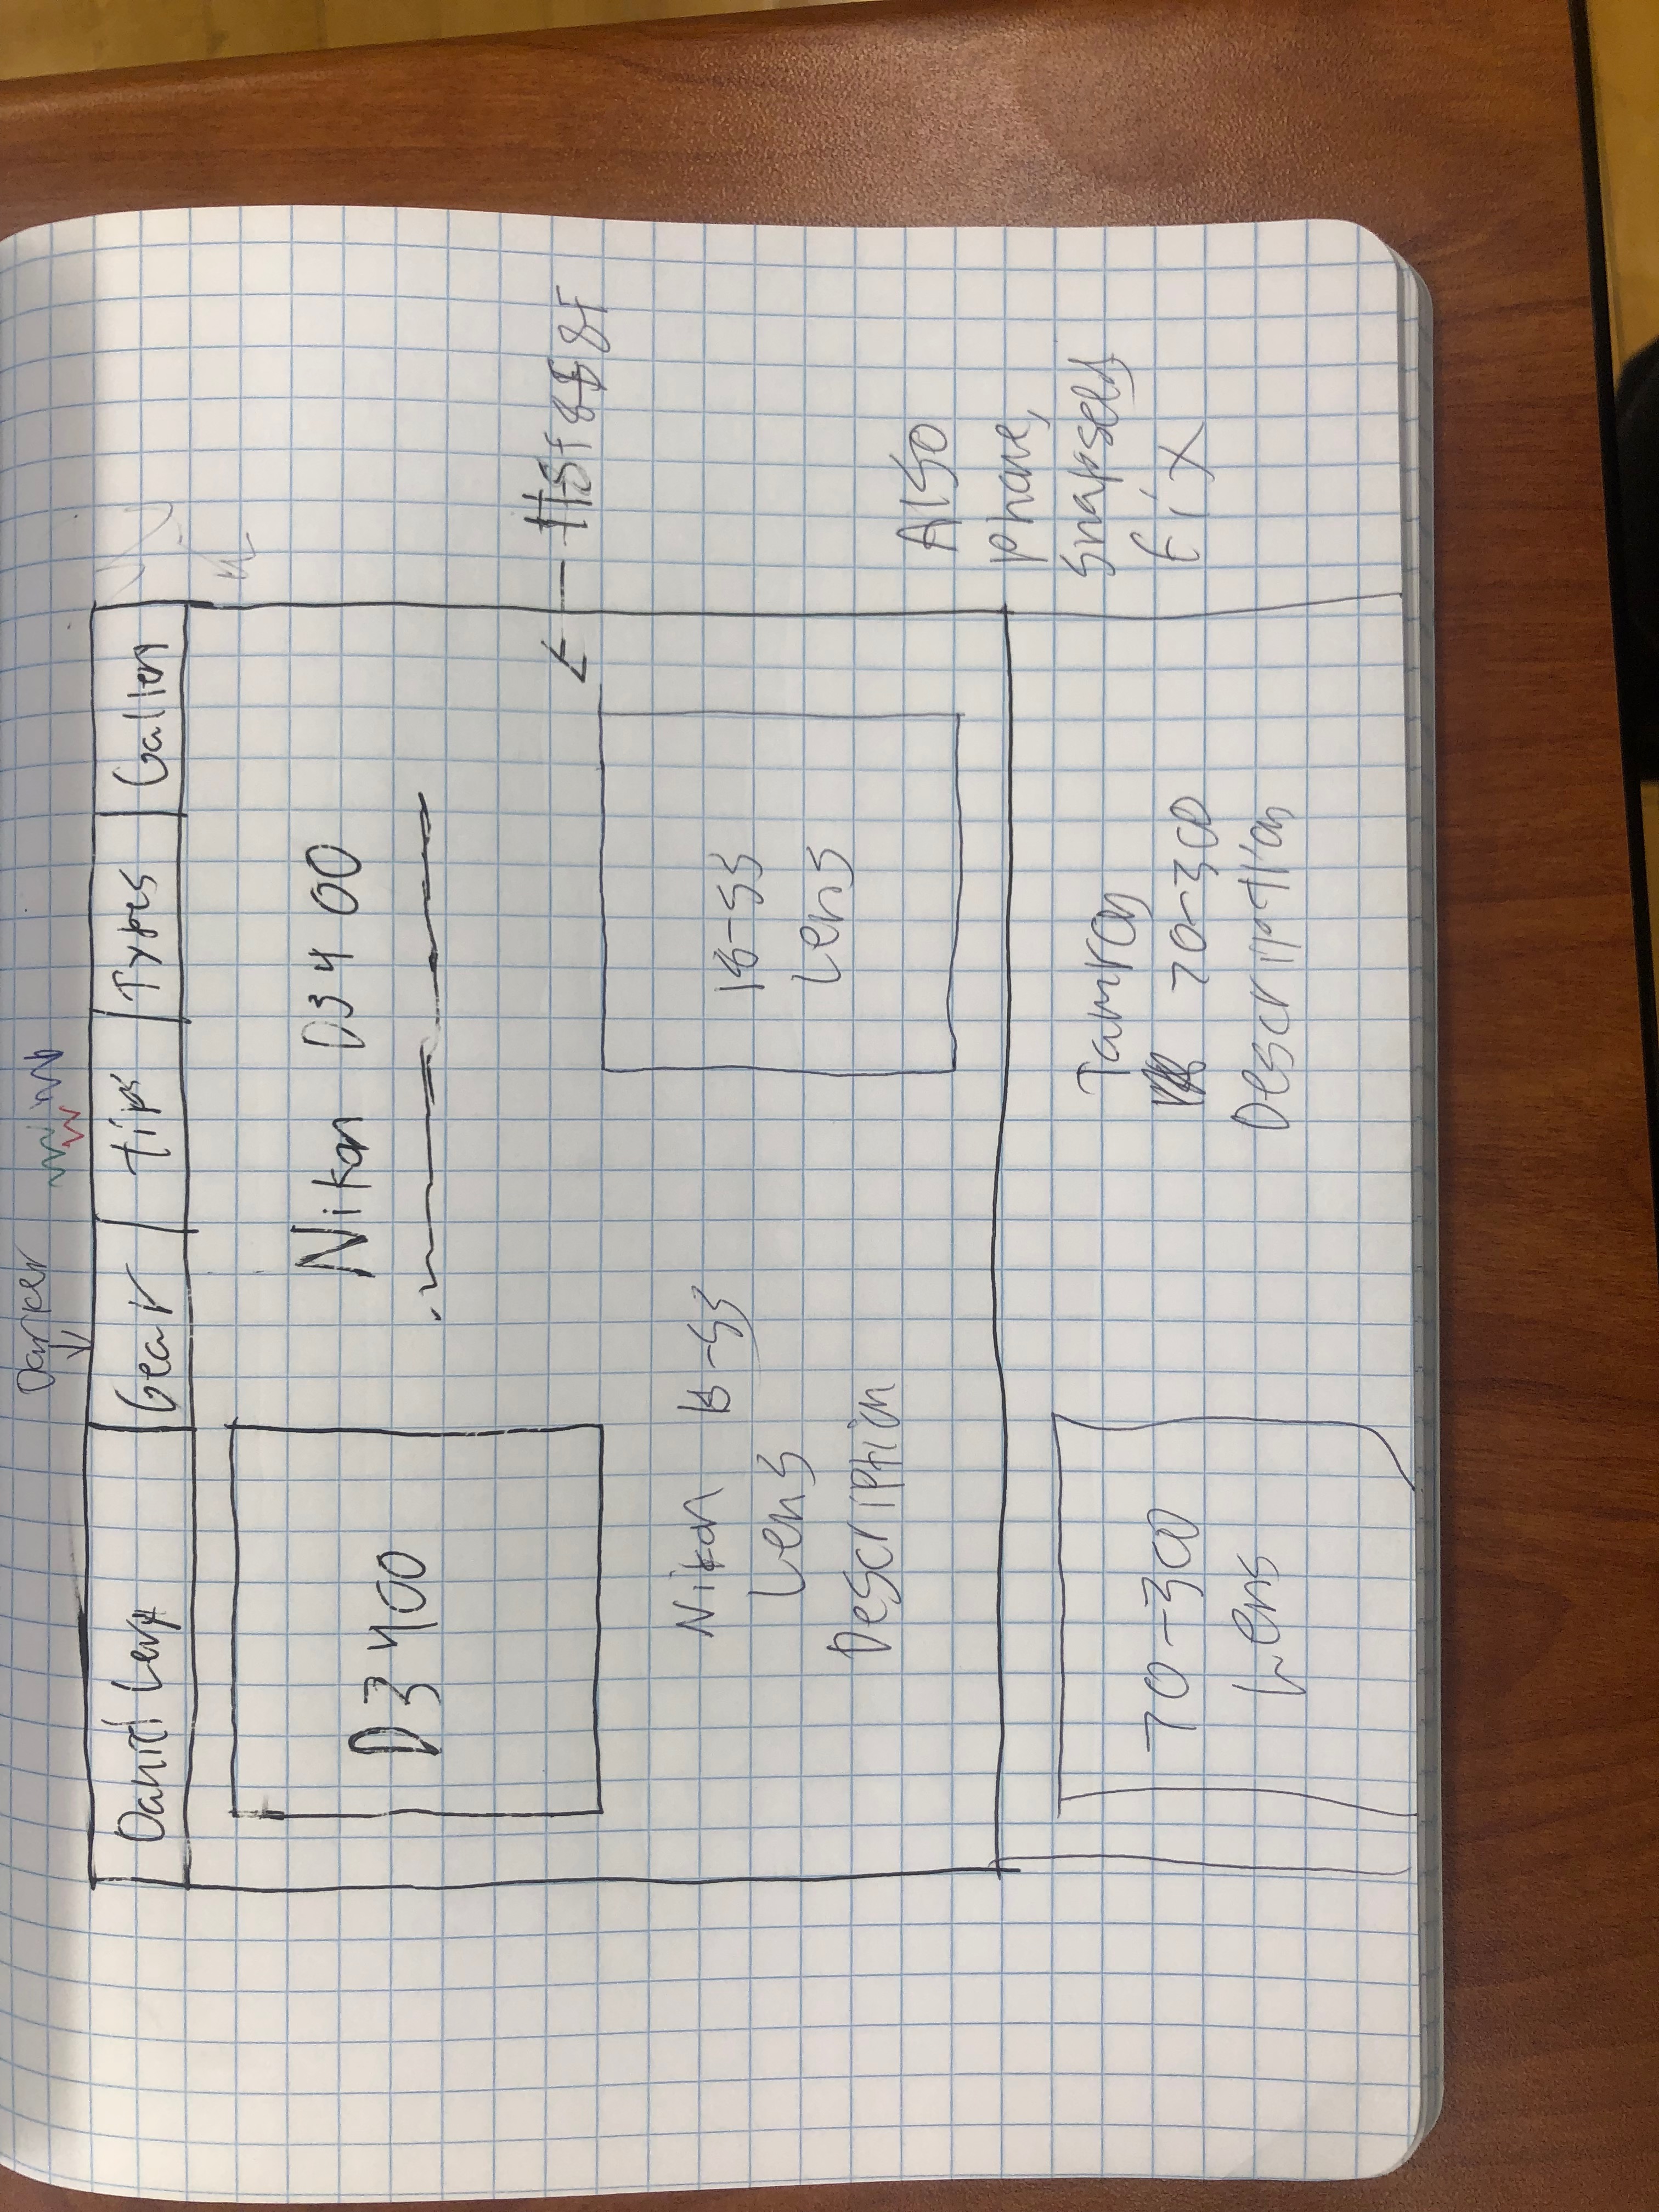 Darker
Daniel Levy Gear tips Types Gallery
D3400
Nikon D3400
#8f8f8f
Nikon 18-55
Lens
Description
18-55
Lens
Also
phone,
snapseed,
fix
70-300
Lens
Tamron
70-300
Description